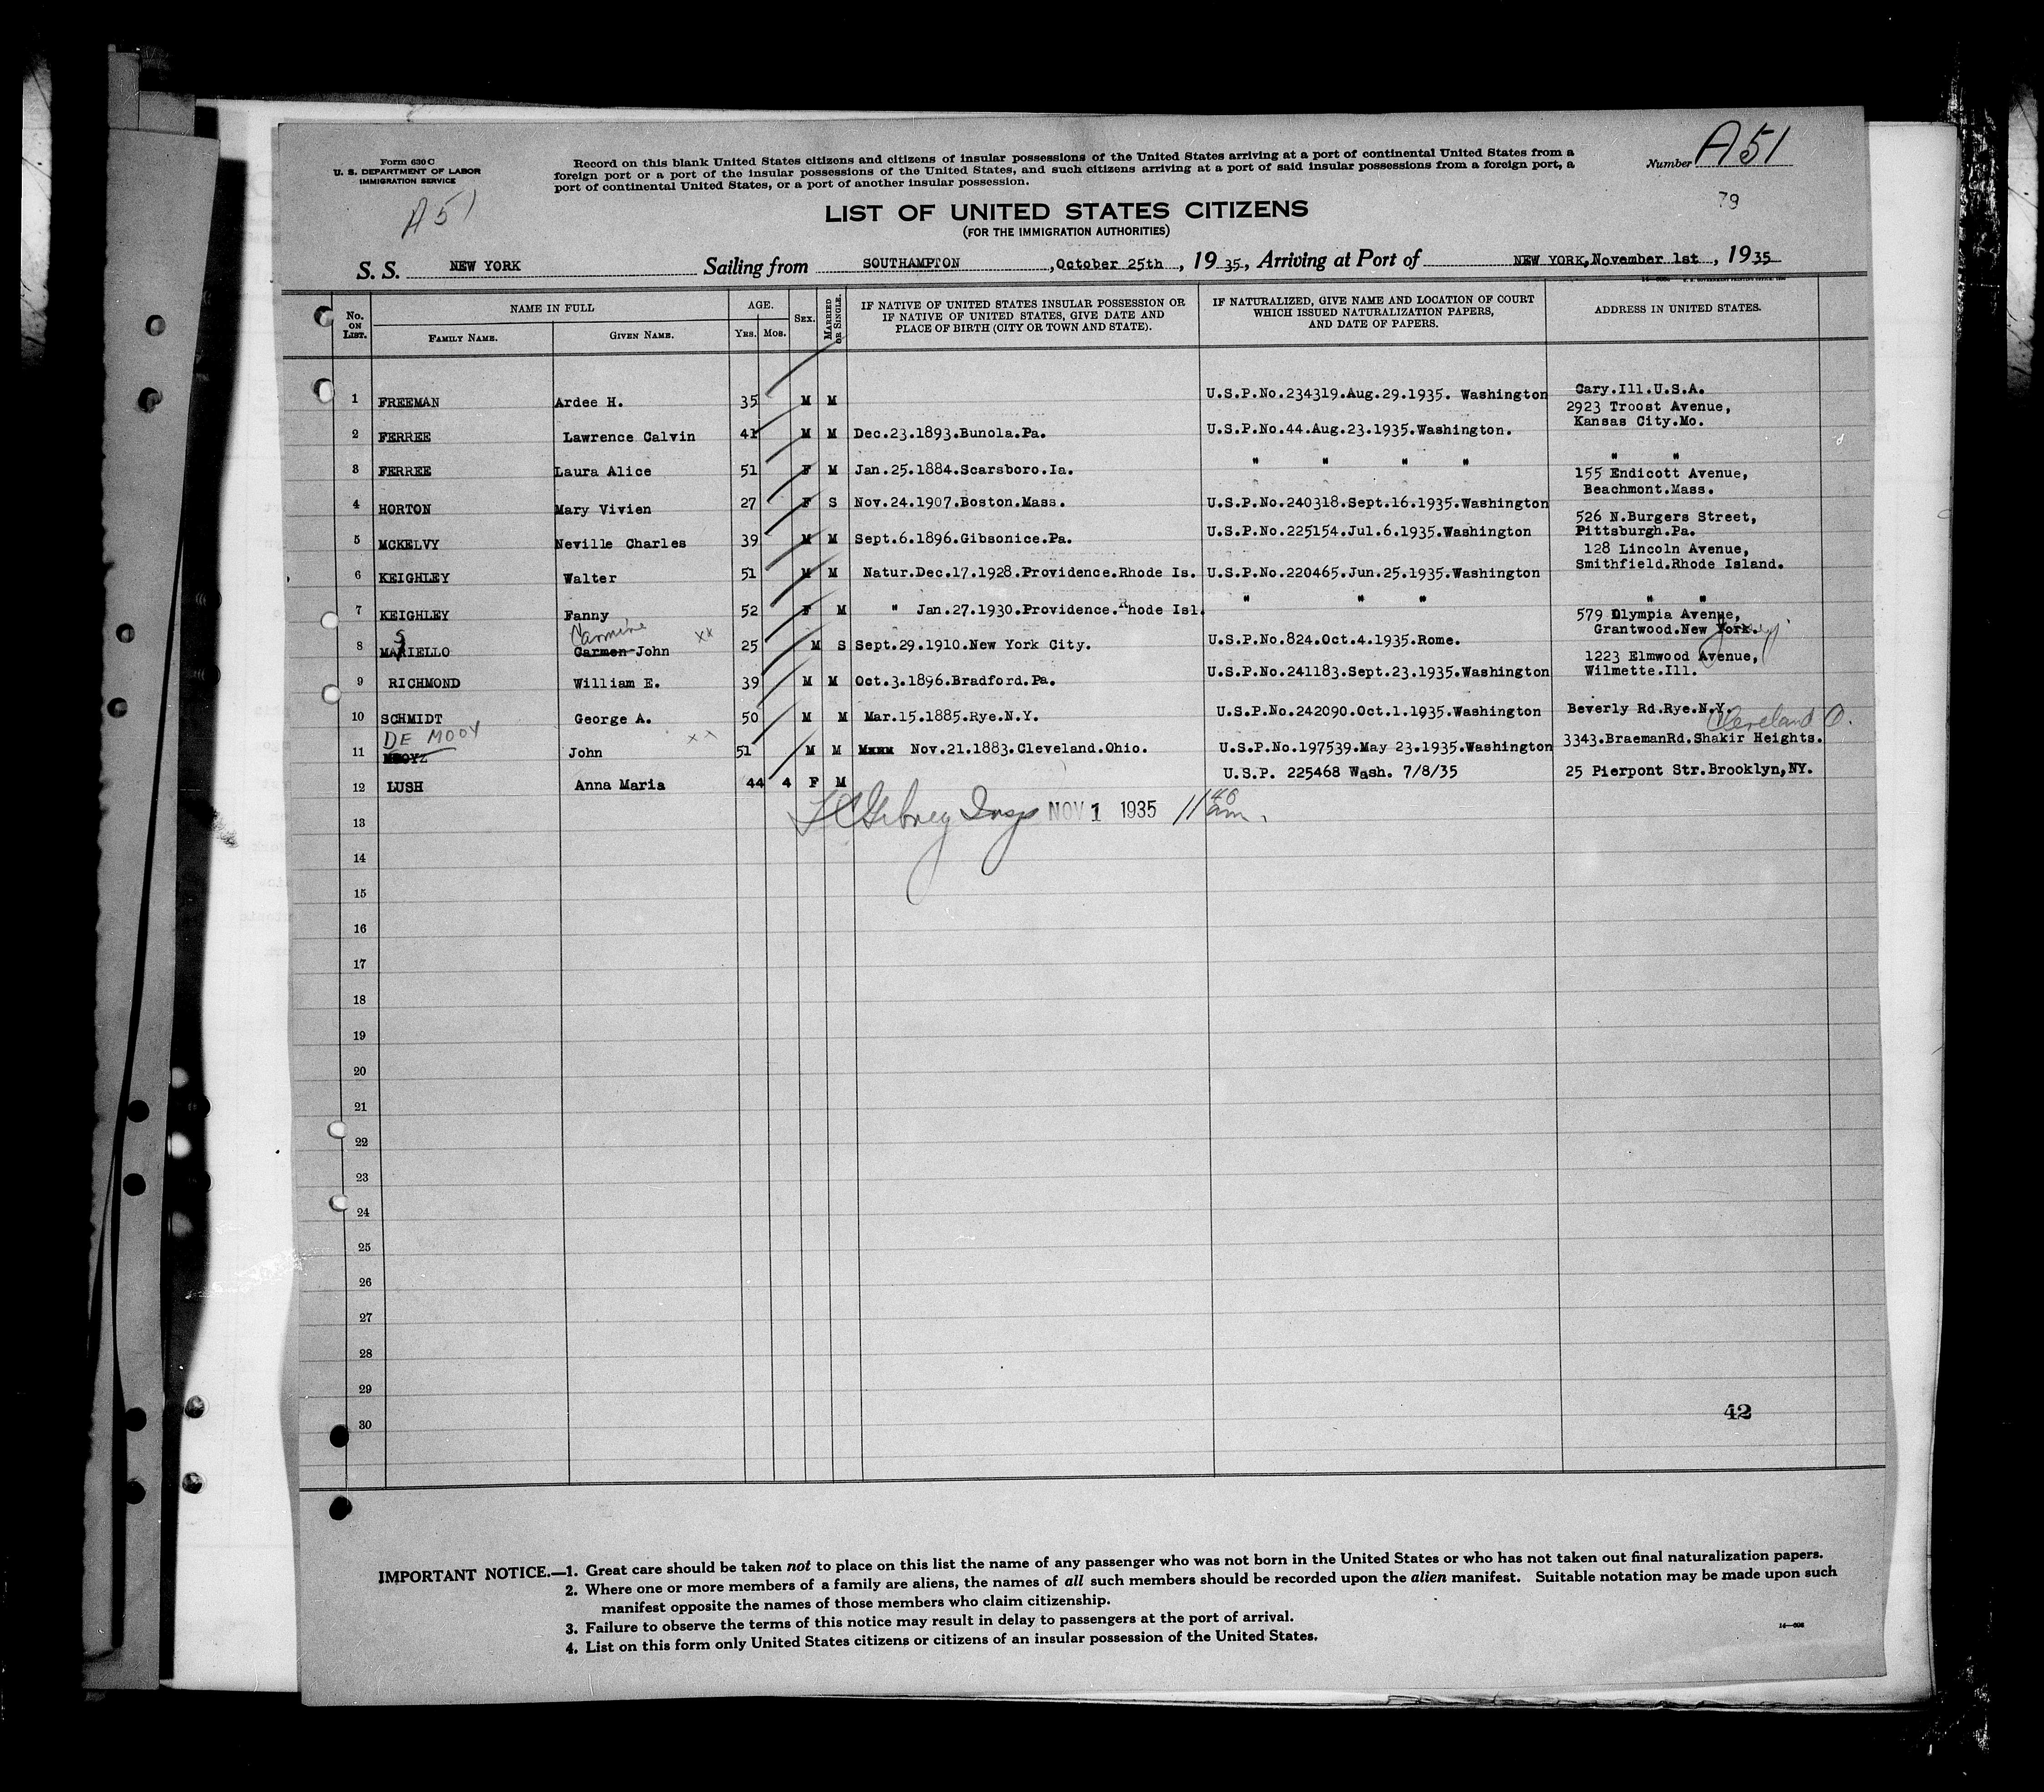 Form 630 C
U. S. DEPARTMENT OF LABOR
IMMIGRATION SERVICE
A51
Record on this blank United States citizens and citizens of insular possessions of the United States arriving at a port of continental United States from a
foreign port or a port of the insular possessions of the United States, and such citizens arriving at a port of said insular possessions from a foreign port, a
port of continental United States, or a port of another insular possession.
Number A51
LIST OF UNITED STATES CITIZENS
(FOR THE IMMIGRATION AUTHORITIES)
S. S. NEW YORK Sailing from SOUTHAMPTON, October 25th, 1935, Arriving at Port of NEW YORK, November 1st, 1935
No. ON LIST. NAME IN FULL AGE. SEX. MARRIED OR SINGLE. IF NATIVE OF UNITED STATES INSULAR POSSESSION OR IF NATIVE OF UNITED STATES, GIVE DATE AND PLACE OF BIRTH (CITY OR TOWN AND STATE). IF NATURALIZED, GIVE NAME AND LOCATION OF COURT WHICH ISSUED NATURALIZATION PAPERS, AND DATE OF PAPERS. ADDRESS IN UNITED STATES.
FAMILY NAME. GIVEN NAME. YRS. MOS.
1 FREEMAN Ardee H. 35 M M U.S.P.No.234319.Aug.29.1935. Washington Cary.Ill.U.S.A.
2923 Troost Avenue,
2 FERREE Lawrence Calvin 41 M M Dec.23.1893.Bunola.Pa. U.S.P.No.44.Aug.23.1935.Washington. Kansas City.Mo.
3 FERREE Laura Alice 51 F M Jan.25.1884.Scarsboro.Ia. " " " " " "
155 Endicott Avenue,
Beachmont.Mass.
4 HORTON Mary Vivien 27 F S Nov.24.1907.Boston.Mass. U.S.P.No.240318.Sept.16.1935.Washington
526 N.Burgers Street,
5 MCKELVY Neville Charles 39 M M Sept.6.1896.Gibsonice.Pa. U.S.P.No.225154.Jul.6.1935.Washington Pittsburgh.Pa.
128 Lincoln Avenue,
6 KEIGHLEY Walter 51 M M Natur.Dec.17.1928.Providence.Rhode Is. U.S.P.No.220465.Jun.25.1935.Washington Smithfield.Rhode Island.
7 KEIGHLEY Fanny 52 F M " Jan.27.1930.Providence.Rhode Isl. " " " " "
579 Olympia Avenue,
Carmine xx Grantwood.New York.
8 MARIELLO Carmen John 25 M S Sept.29.1910.New York City. U.S.P.No.824.Oct.4.1935.Rome.
S
1223 Elmwood Avenue,
9 RICHMOND William E. 39 M M Oct.3.1896.Bradford.Pa. U.S.P.No.241183.Sept.23.1935.Washington Wilmette.Ill.
10 SCHMIDT George A. 50 M M Mar.15.1885.Rye.N.Y. U.S.P.No.242090.Oct.1.1935.Washington Beverly Rd.Rye.N.Y.
DE MOOY xx Cleveland O.
11 John 51 M M Nov.21.1883.Cleveland.Ohio. U.S.P.No.197539.May 23.1935.Washington 3343.BraemanRd.Shakir Heights.
12 LUSH Anna Maria 44 4 F M U.S.P. 225468 Wash. 7/8/35 25 Pierpont Str.Brooklyn,NY.
13 Insp NOV 1 1935 11 40 am.
14
15
16
17
18
19
20
21
22
23
24
25
26
27
28
29
30
42
IMPORTANT NOTICE.—1. Great care should be taken not to place on this list the name of any passenger who was not born in the United States or who has not taken out final naturalization papers.
2. Where one or more members of a family are aliens, the names of all such members should be recorded upon the alien manifest. Suitable notation may be made upon such
manifest opposite the names of those members who claim citizenship.
3. Failure to observe the terms of this notice may result in delay to passengers at the port of arrival.
4. List on this form only United States citizens or citizens of an insular possession of the United States.